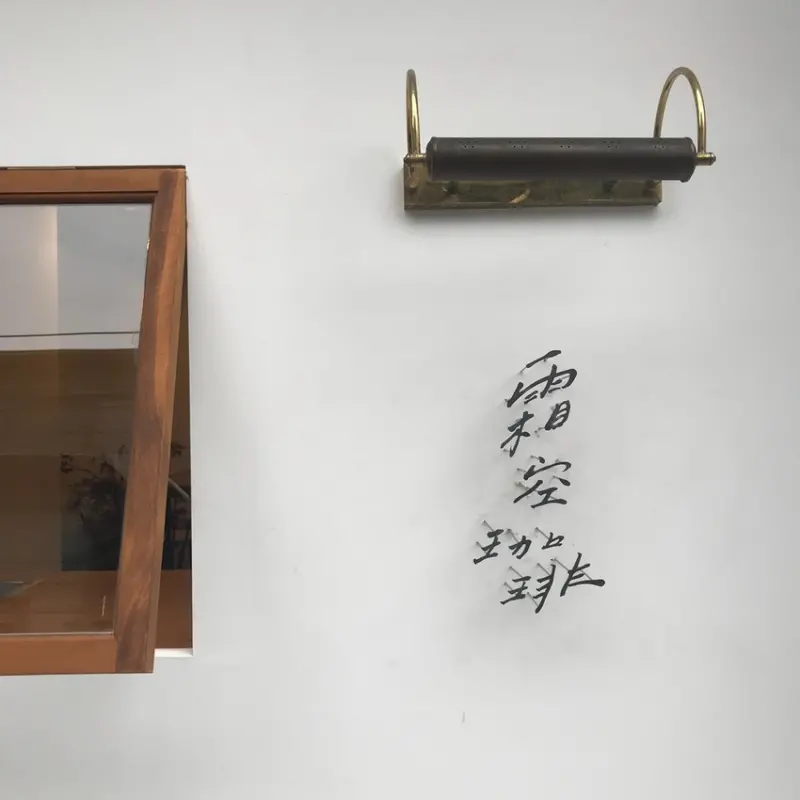 霜空珈琲